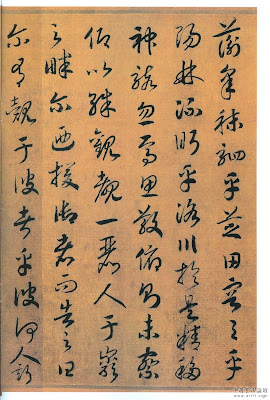 蘅皋秣駟乎芝田容與乎
陽林流眄乎洛川於是精移
神駭忽焉思散俯則未察
仰以殊觀覩一麗人于巖
之畔尔迺援御者而告之曰
尔有覿于彼者乎彼何人斯